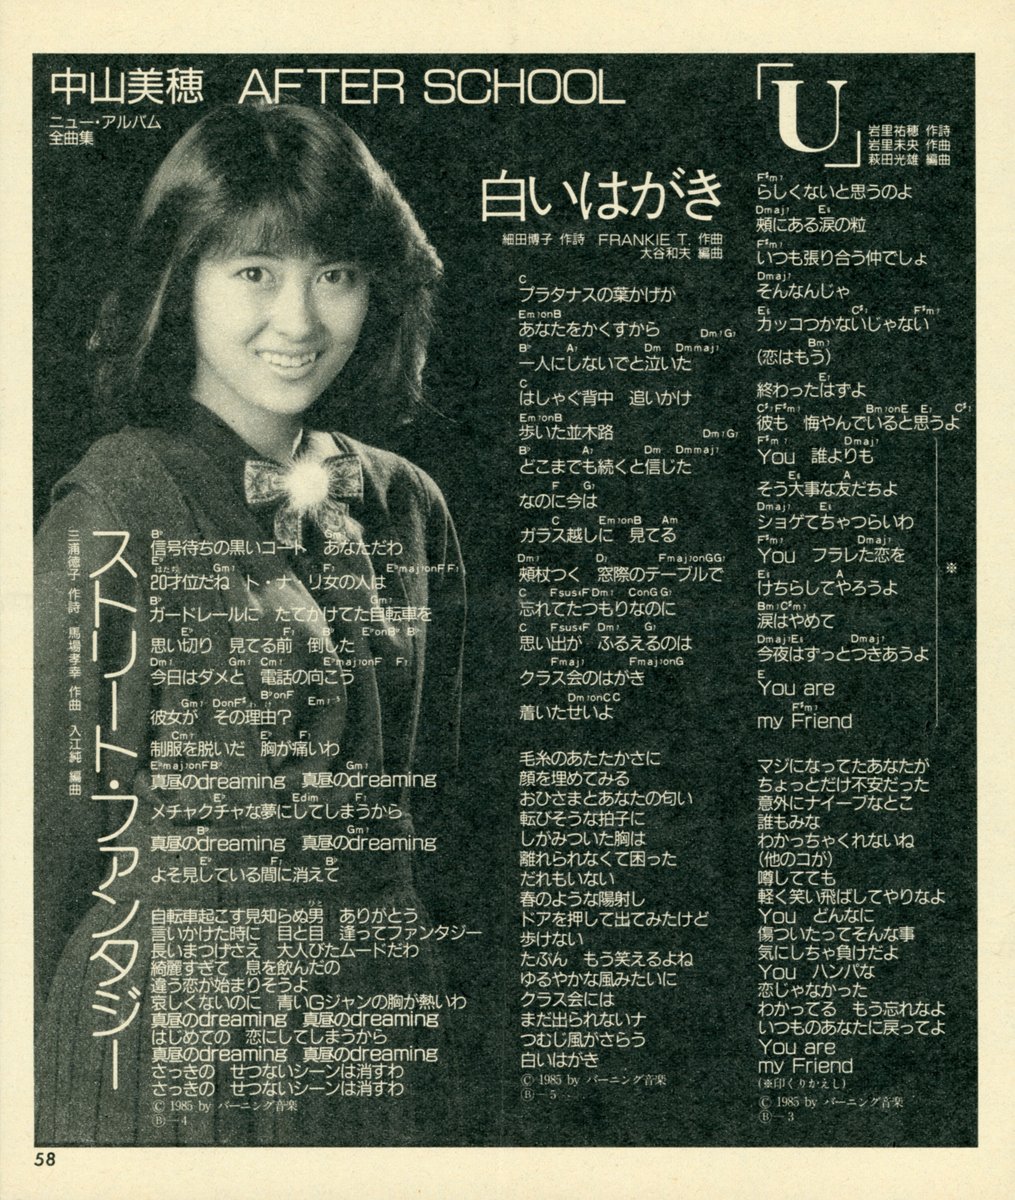 中山美穂 AFTER SCHOOL
ニュー・アルバム
全曲集
「U」
岩里祐穂 作詩
岩里未央 作曲
萩田光雄 編曲
F♯m7
らしくないと思うのよ
Dmaj7 E6
頰にある涙の粒
F♯m7
いつも張り合う仲でしょ
Dmaj7
そんなんじゃ
E6 C♯7 F♯m7
カッコつかないじゃない
Bm7
(恋はもう)
E7
終わったはずよ
C♯7 F♯m7 Bm7onE E7 C♯7
彼も 悔やんでいると思うよ
F♯m7 Dmaj7
You 誰よりも
E6 A
そう大事な友だちよ
Dmaj7 E6
ショゲてちゃつらいわ
F♯m7 Dmaj7
You フラレた恋を
E6 A
けちらしてやろうよ
Bm7 C♯m7
涙はやめて
Dmaj7 E6 Dmaj7
今夜はずっとつきあうよ
E
You are
F♯m7
my Friend
※
マジになってたあなたが
ちょっとだけ不安だった
意外にナイーブなとこ
誰もみな
わかっちゃくれないね
(他のコが)
噂してても
軽く笑い飛ばしてやりなよ
You どんなに
傷ついたってそんな事
気にしちゃ負けだよ
You ハンパな
恋じゃなかった
わかってる もう忘れなよ
いつものあなたに戻ってよ
You are
my Friend
(※印くりかえし)
© 1985 by バーニング音楽
Ⓑ—3
白いはがき
細田博子 作詩 FRANKIE T. 作曲
大谷和夫 編曲
C
プラタナスの葉かげが
Em7onB
あなたをかくすから Dm7 G7
B♭ A7 Dm Dmmaj7
一人にしないでと泣いた
C
はしゃぐ背中 追いかけ
Em7onB
歩いた並木路 Dm7 G7
B♭ A7 Dm Dmmaj7
どこまでも続くと信じた
F G7
なのに今は
C Em7onB Am
ガラス越しに 見てる
Dm7 D7 Fmaj7onG G7
頰杖つく 窓際のテーブルで
C Fsus4 F Dm7 ConG G7
忘れてたつもりなのに
C Fsus4 F Dm7 G7
思い出が ふるえるのは
Fmaj7 Fmaj7onG
クラス会のはがき
Dm7onC C
着いたせいよ
毛糸のあたたかさに
顔を埋めてみる
おひさまとあなたの匂い
転びそうな拍子に
しがみついた胸は
離れられなくて困った
だれもいない
春のような陽射し
ドアを押して出てみたけど
歩けない
たぶん もう笑えるよね
ゆるやかな風みたいに
クラス会には
まだ出られないナ
つむじ風がさらう
白いはがき
© 1985 by バーニング音楽
Ⓑ—5
ストリート・ファンタジー
三浦徳子 作詩 馬場孝幸 作曲 入江純 編曲
B♭ Gm7
信号待ちの黒いコート あなただわ
はたち
E♭ Gm7 F7 E♭maj7onF F7
20才位だね ト・ナ・リ女の人は
B♭ Gm7
ガードレールに たてかけてた自転車を
E♭ F7 B♭ E♭onB♭ B♭
思い切り 見てる前 倒した
Dm7 Gm7 Cm7 E♭maj7onF F7
今日はダメと 電話の向こう
Gm7 DonF♯ B♭onF Em7-5
わけ
彼女が その理由?
Cm7 E♭ F7
制服を脱いだ 胸が痛いわ
E♭maj7onF B♭ Gm7
真昼のdreaming 真昼のdreaming
E♭ Edim F7
メチャクチャな夢にしてしまうから
B♭ Gm7
真昼のdreaming 真昼のdreaming
E♭ F7 B♭
よそ見している間に消えて
ひと
自転車起こす見知らぬ男 ありがとう
言いかけた時に 目と目 逢ってファンタジー
長いまつげさえ 大人びたムードだわ
綺麗すぎて 息を飲んだの
違う恋が始まりそうよ
哀しくないのに 青いGジャンの胸が熱いわ
真昼のdreaming 真昼のdreaming
はじめての 恋にしてしまうから
真昼のdreaming 真昼のdreaming
さっきの せつないシーンは消すわ
さっきの せつないシーンは消すわ
© 1985 by バーニング音楽
Ⓑ—4
58